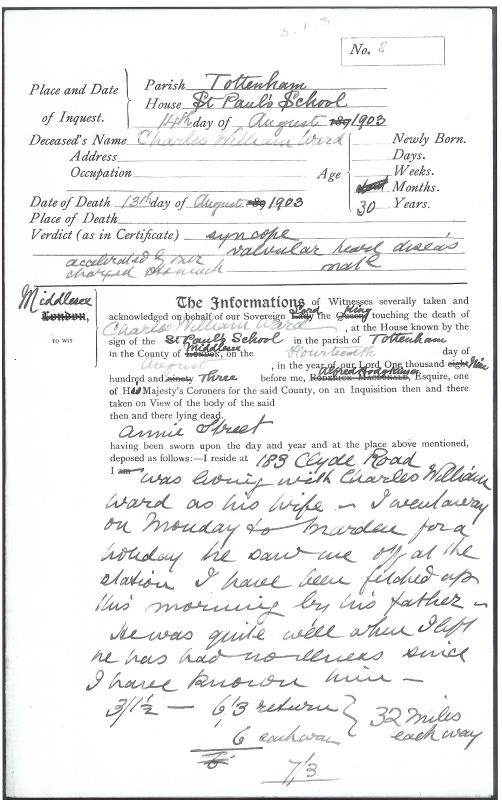 3.1.3
No. 8
Place and Date of Inquest.
Parish Tottenham
House St Paul's School
14th day of August 189 1903
Deceased's Name Charles William Ward
Address
Occupation
Age
Newly Born.
Days.
Weeks.
Months.
30 Years.
Date of Death 13th day of August 189 1903
Place of Death
Verdict (as in Certificate) syncope
valvular heart disease
accelerated by over
charged stomach
male
Middlesex
London,
TO WIT
The Informations of Witnesses severally taken and
acknowledged on behalf of our Sovereign Lady Lord the Queen King touching the death of
Charles William Ward, at the House known by the
sign of the St Paul's School in the parish of Tottenham
in the County of London Middlesex, on the Fourteenth day of
August, in the year of our Lord One thousand eight Nine
hundred and ninety Three before me, RODERICK MACDONALD, Esquire, one
of His Majesty's Coroners for the said County, on an Inquisition then and there
taken on View of the body of the said
then and there lying dead.
Annie Street
having been sworn upon the day and year and at the place above mentioned,
deposed as follows:—I reside at 183 Clyde Road
I am was living with Charles William
Ward as his wife – I went away
on Monday to Marden for a
holiday he saw me off at the
station I have been fetched up
this morning by his father –
He was quite well when I left
he has had no illness since
I have known him –
3/1½ — 6/3 return
6 each way
32 miles
each way
6
7/3